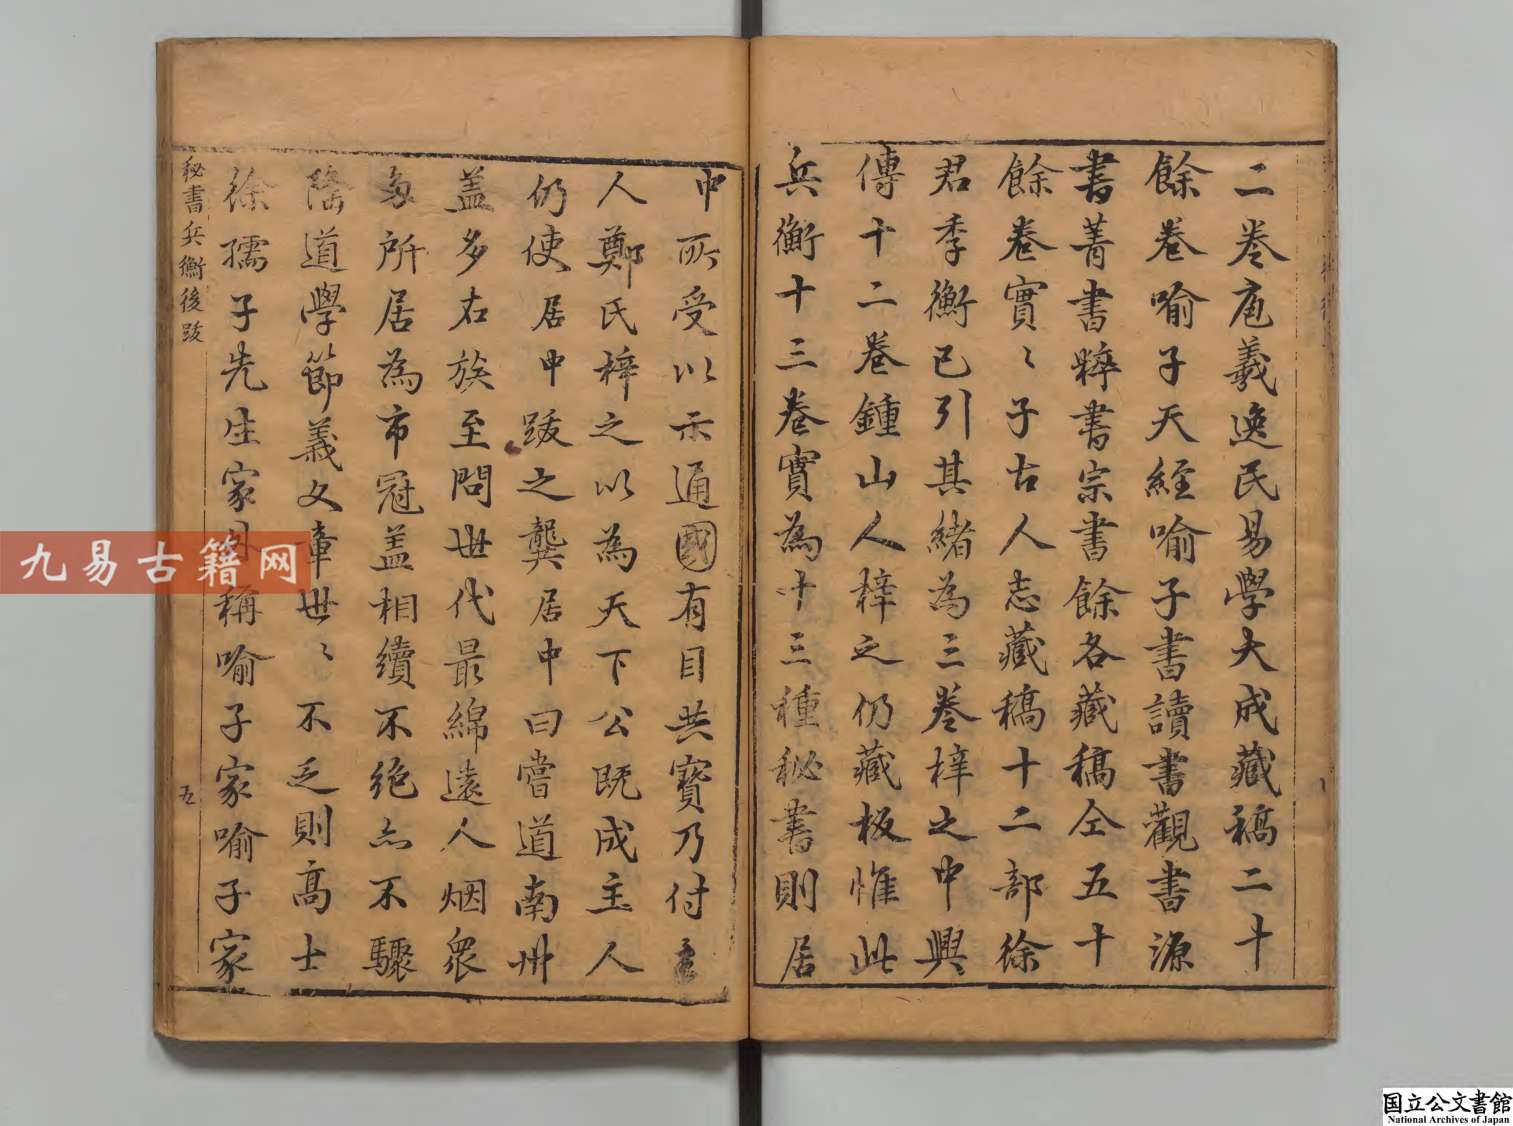 二卷庖羲逸民易學大成藏稿二十
餘卷喻子天經喻子書讀書觀書源
書菁書粹書宗書餘各藏稿仝五十
餘卷實〻子古人志藏稿十二部徐
君季衡已引其緒為三卷梓之中興
傳十二卷鍾山人梓之仍藏板惟此
兵衡十三卷實為十三種秘書則居
中所受以示通國有目共寶乃付
人鄭氏梓之以為天下公既成主人
仍使居中跋之龔居中曰嘗道南州
盖多右族至問世代最綿遠人烟衆
多所居為市冠盖相續不絶亦不驟
隆道學節義文章世〻不乏則高士
徐孺子先生家
稱喻子家喻子家
秘書兵衡後跋
五
九易古籍网
国立公文書館
National Archives of Japan